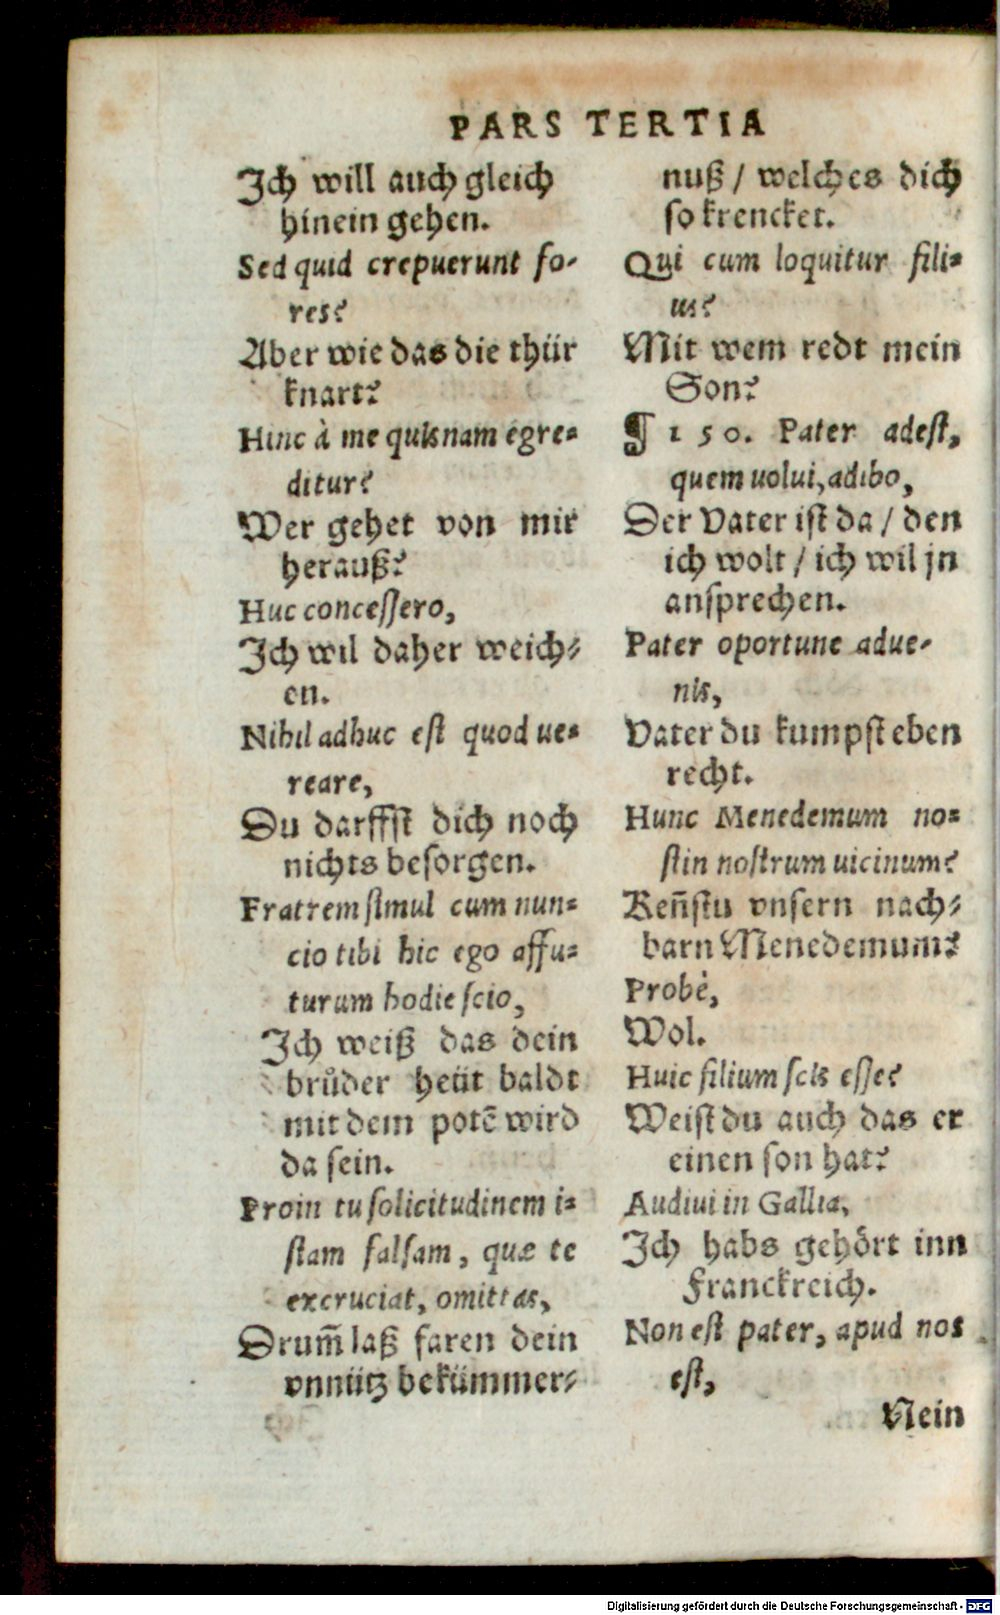 PARS TERTIA
Ich will auch gleich
hinein gehen.
Sed quid crepuerunt fo-
res?
Aber wie das die thür
knart?
Hinc à me quisnam egre-
ditur?
Wer gehet von mir
herauß?
Huc concessero,
Ich wil daher weich-
en.
Nihil adhuc est quod ue-
reare,
Du darffst dich noch
nichts besorgen.
Fratrem simul cum nun-
cio tibi hic ego affu-
turum hodie scio,
Ich weiß das dein
brůder heüt baldt
mit dem potē wird
da sein.
Proin tu solicitudinem i-
stam falsam, quæ te
excruciat, omittas,
Drum̄ laß faren dein
vnnütz bekümmer-
nuß / welches dich
so krencket.
Qui cum loquitur fili-
us?
Mit wem redt mein
Son?
¶ 150. Pater adest,
quem uolui, adibo,
Der Vater ist da / den
ich wolt / ich wil jn
ansprechen.
Pater oportune adue-
nis,
Vater du kumpst eben
recht.
Hunc Menedemum no-
stin nostrum uicinum?
Ken̄stu vnsern nach-
barn Menedemum?
Probè,
Wol.
Huic filium scis esse?
Weist du auch das er
einen son hat?
Audiui in Gallia,
Ich habs gehört inn
Franckreich.
Non est pater, apud nos
est,
Nein
Digitalisierung gefördert durch die Deutsche Forschungsgemeinschaft - DFG